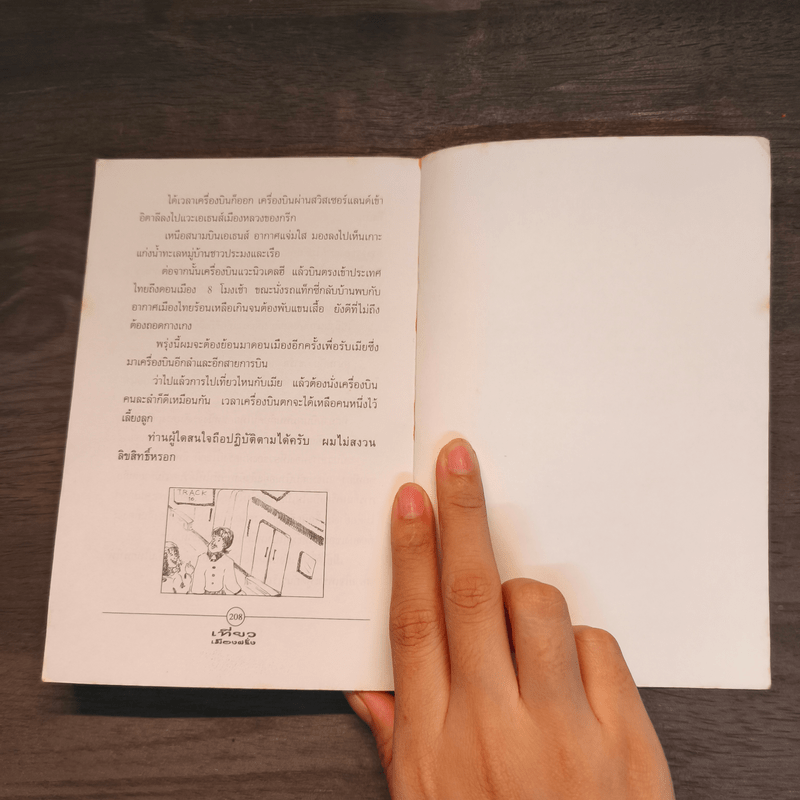 ได้เวลาเครื่องบินก็ออก เครื่องบินผ่านสวิสเซอร์แลนด์เข้า
อิตาลีลงไปแวะเอเธนส์เมืองหลวงของกรีก
เหนือสนามบินเอเธนส์ อากาศแจ่มใส มองลงไปเห็นเกาะ
แก่งน้ำทะเลหมู่บ้านชาวประมงและเรือ
ต่อจากนั้นเครื่องบินแวะนิวเดลฮี แล้วบินตรงเข้าประเทศ
ไทยถึงดอนเมือง 8 โมงเช้า ขณะนั่งรถแท็กซี่กลับบ้านพบกับ
อากาศเมืองไทยร้อนเหลือเกินจนต้องพับแขนเสื้อ ยังดีที่ไม่ถึง
ต้องถอดกางเกง
พรุ่งนี้ผมจะต้องย้อนมาดอนเมืองอีกครั้งเพื่อรับเมียซึ่ง
มาเครื่องบินอีกลำและอีกสายการบิน
ว่าไปแล้วการไปเที่ยวไหนกับเมีย แล้วต้องนั่งเครื่องบิน
คนละลำก็ดีเหมือนกัน เวลาเครื่องบินตกจะได้เหลือคนหนึ่งไว้
เลี้ยงลูก
ท่านผู้ใดสนใจถือปฏิบัติตามได้ครับ ผมไม่สงวน
ลิขสิทธิ์หรอก
TRACK
208
เที่ยว
เมืองฝรั่ง